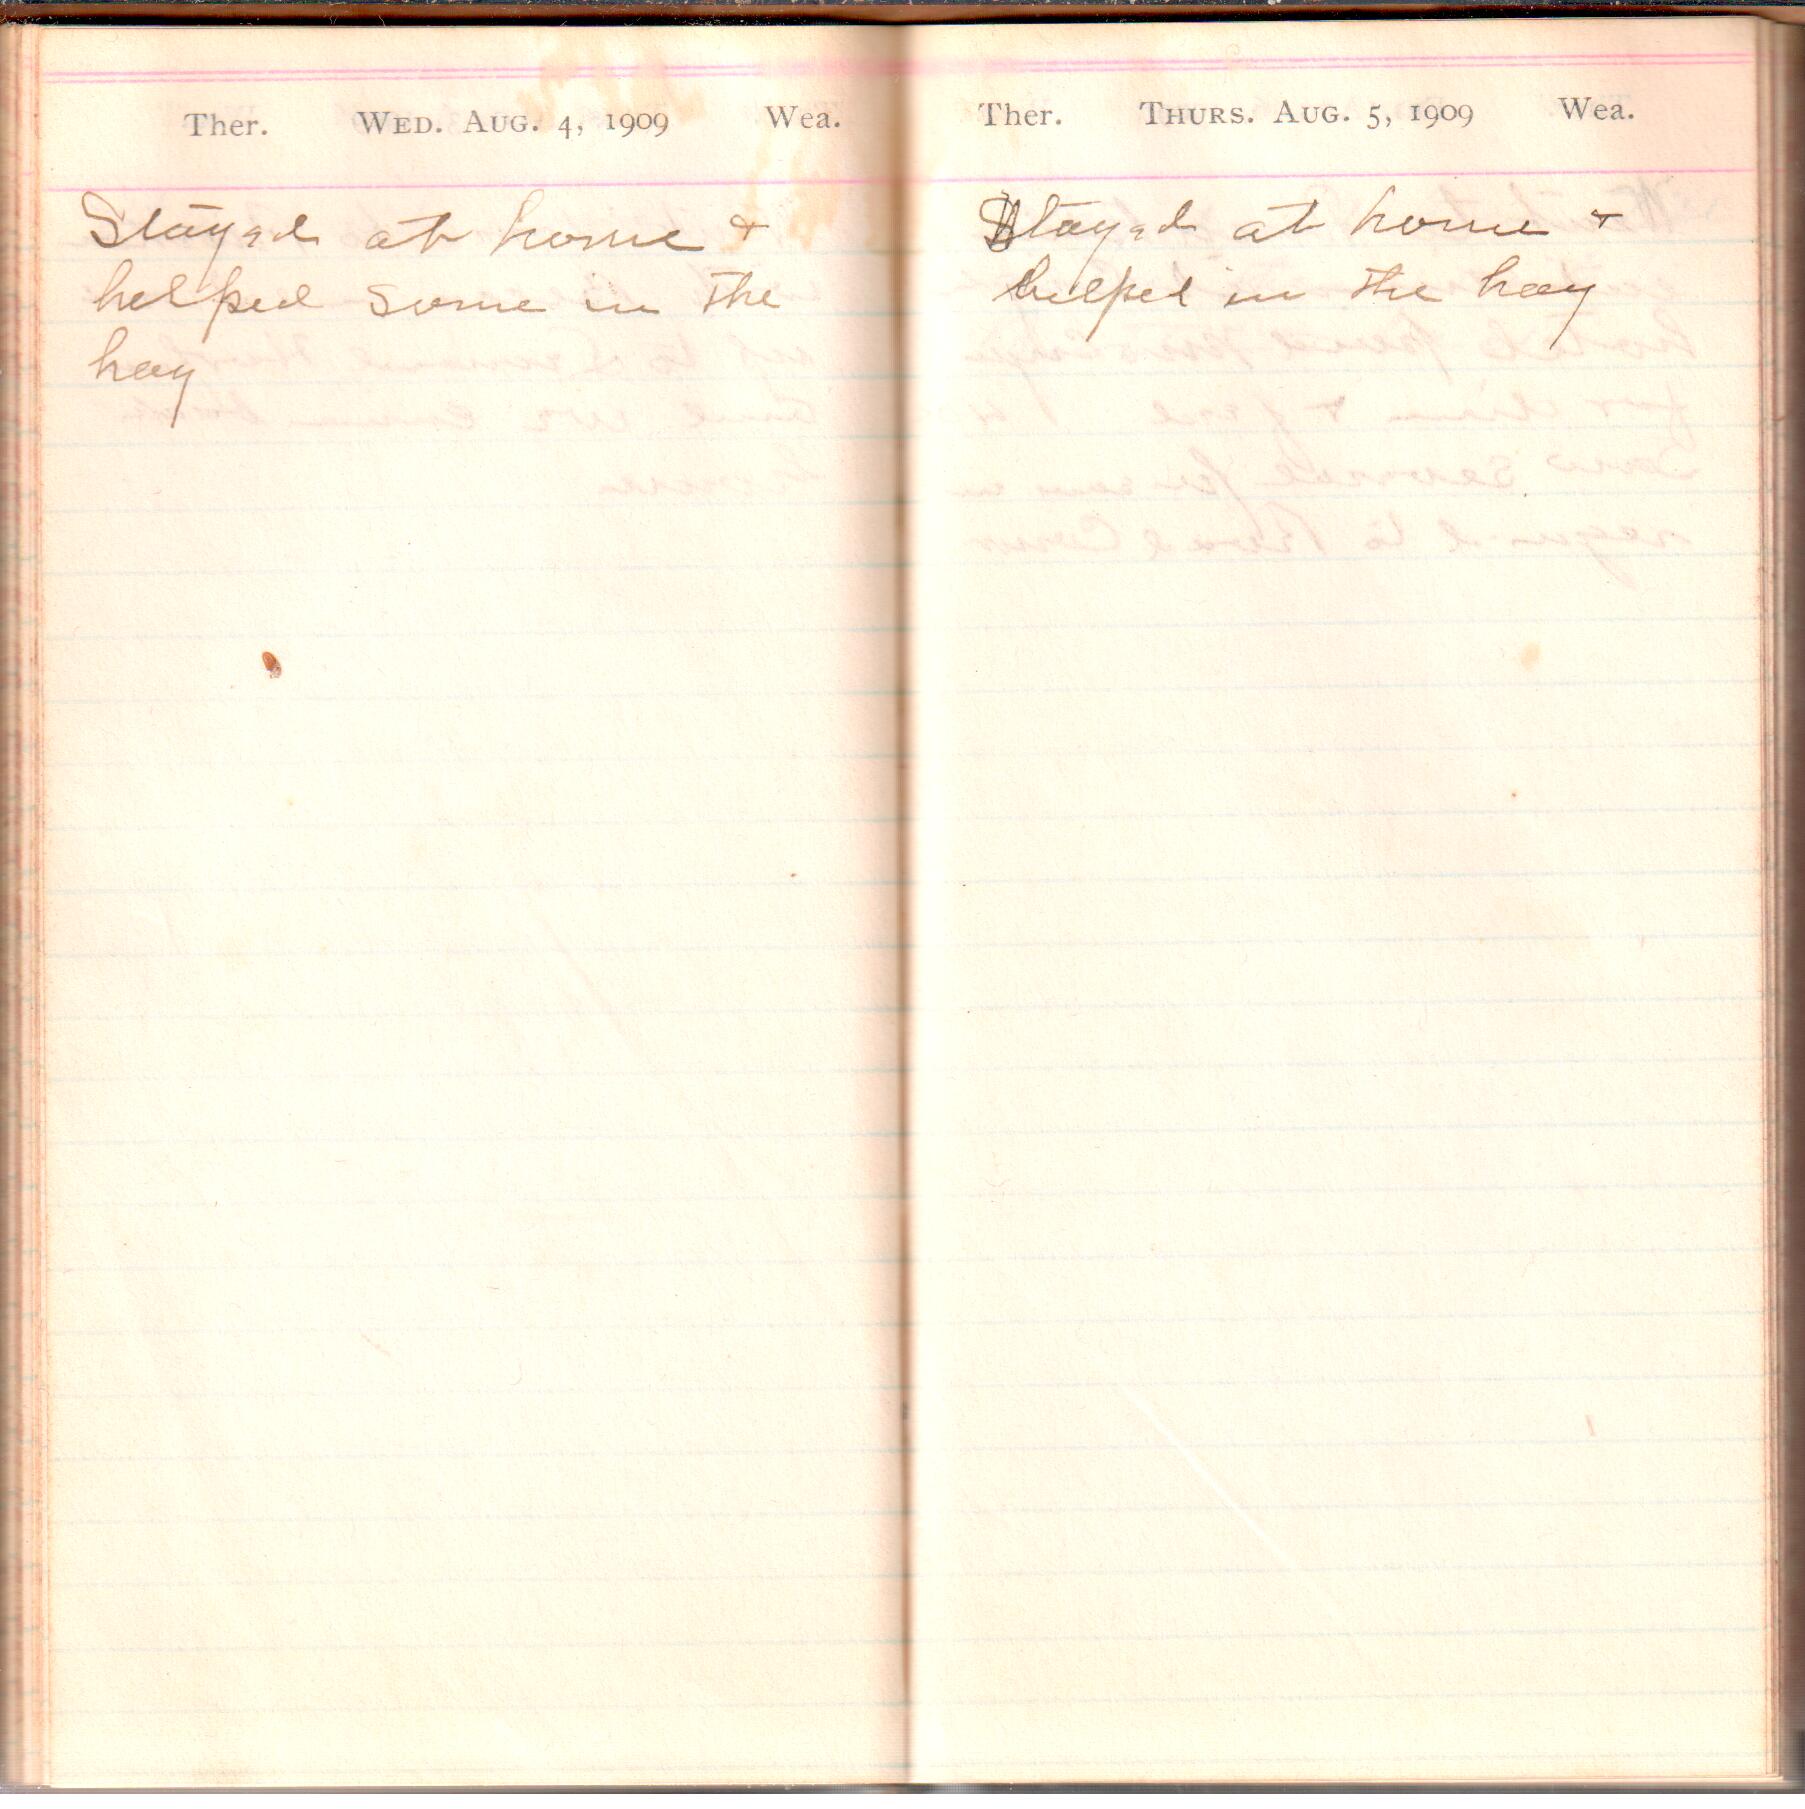 Ther. WED. AUG. 4, 1909 Wea.
Stayed at home &
helped some in the
hay
Ther. THURS. AUG. 5, 1909 Wea.
Stayed at home &
helped in the hay